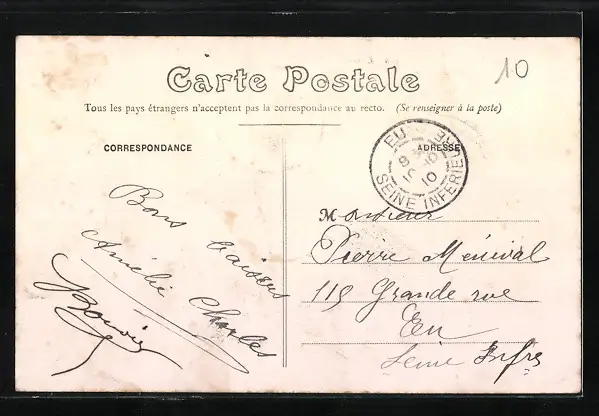 Carte Postale
10
Tous les pays étrangers n'acceptent pas la correspondance au recto. (Se renseigner à la poste)
CORRESPONDANCE
ADRESSE
EU
SEINE INFERIEURE
10
Bons baisers
Amélie Charles
Monsieur
Pierre Ménival
115 Grande rue
Eu
Seine Infre